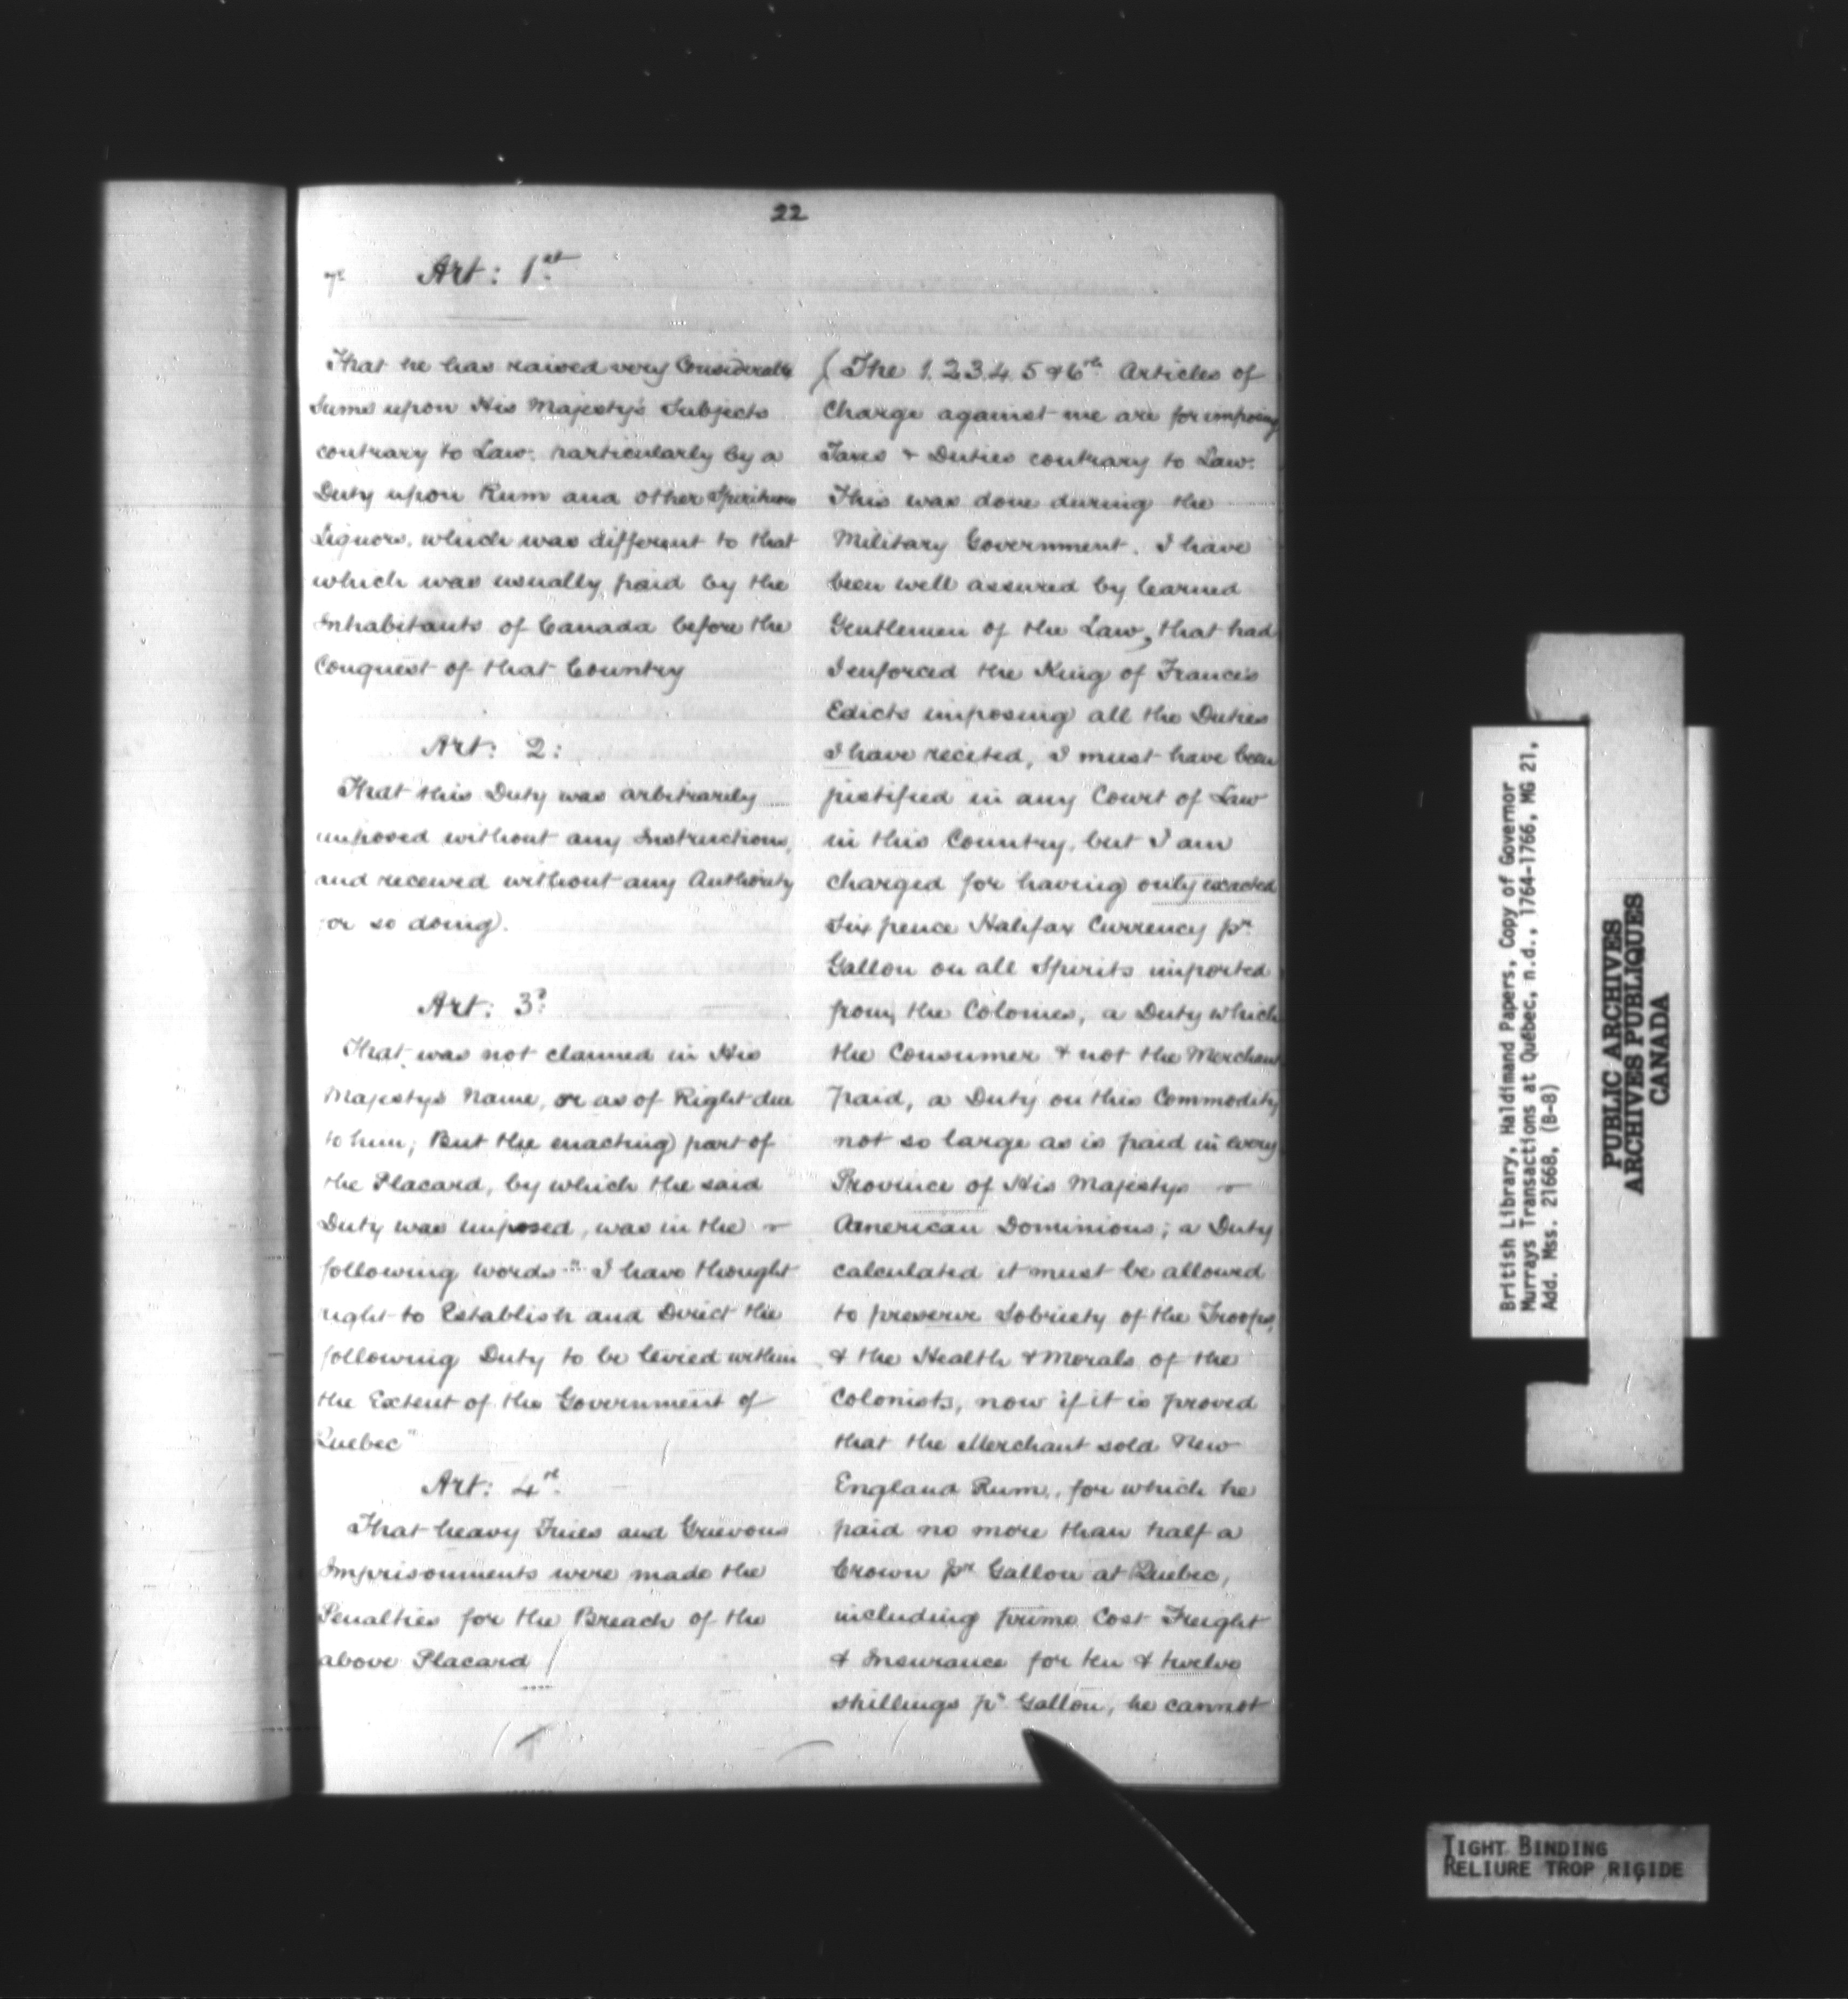 22
Art: 1st
That he has raised very Considerable
Sums upon His Majesty's Subjects
contrary to Law; particularly by a
Duty upon Rum and other Spirituous
Liquors, which was different to that
which was usually paid by the
Inhabitants of Canada before the
Conquest of that Country
Art: 2:
That this Duty was arbitrarily
imposed without any Instructions,
and received without any Authority
for so doing.
Art: 3d
That was not claimed in His
Majestys Name, or as of Right due
to him; But the enacting part of
the Placard, by which the said
Duty was imposed, was in the
following words "I have thought
right to Establish and Direct the
following Duty to be levied within
the Extent of the Government of
Quebec"
Art: 4th
That heavy Fines and Grievous
Imprisonments were made the
Penalties for the Breach of the
above Placard /
(The 1. 2. 3. 4. 5 & 6th Articles of
Charge against me are for imposing
Taxes & Duties contrary to Law.
This was done during the
Military Government. I have
been well assured by learned
Gentlemen of the Law, that had
I enforced the King of France's
Edicts imposing all the Duties
I have recited, I must have been
justified in any Court of Law
in this Country, but I am
charged for having only exacted
Six pence Halifax Currency pr
Gallon on all Spirits imported
from the Colonies, a Duty which
the Consumer & not the Merchant
paid, a Duty on this Commodity
not so large as is paid in every
Province of His Majestys
American Dominions; a Duty
calculated it must be allowed
to preserve Sobriety of the Troops,
& the Health & Morals of the
Colonists, now if it is proved
that the Merchant sold New
England Rum, for which he
paid no more than half a
Crown pr Gallon at Quebec,
including prime Cost Freight
& Insurance for ten & twelve
shillings pr Gallon, he cannot
British Library, Haldimand Papers, Copy of Governor
Murrays Transactions at Québec, n.d., 1764-1766, MG 21,
Add. Mss. 21668, (B-8)
PUBLIC ARCHIVES
ARCHIVES PUBLIQUES
CANADA
TIGHT BINDING
RELIURE TROP RIGIDE